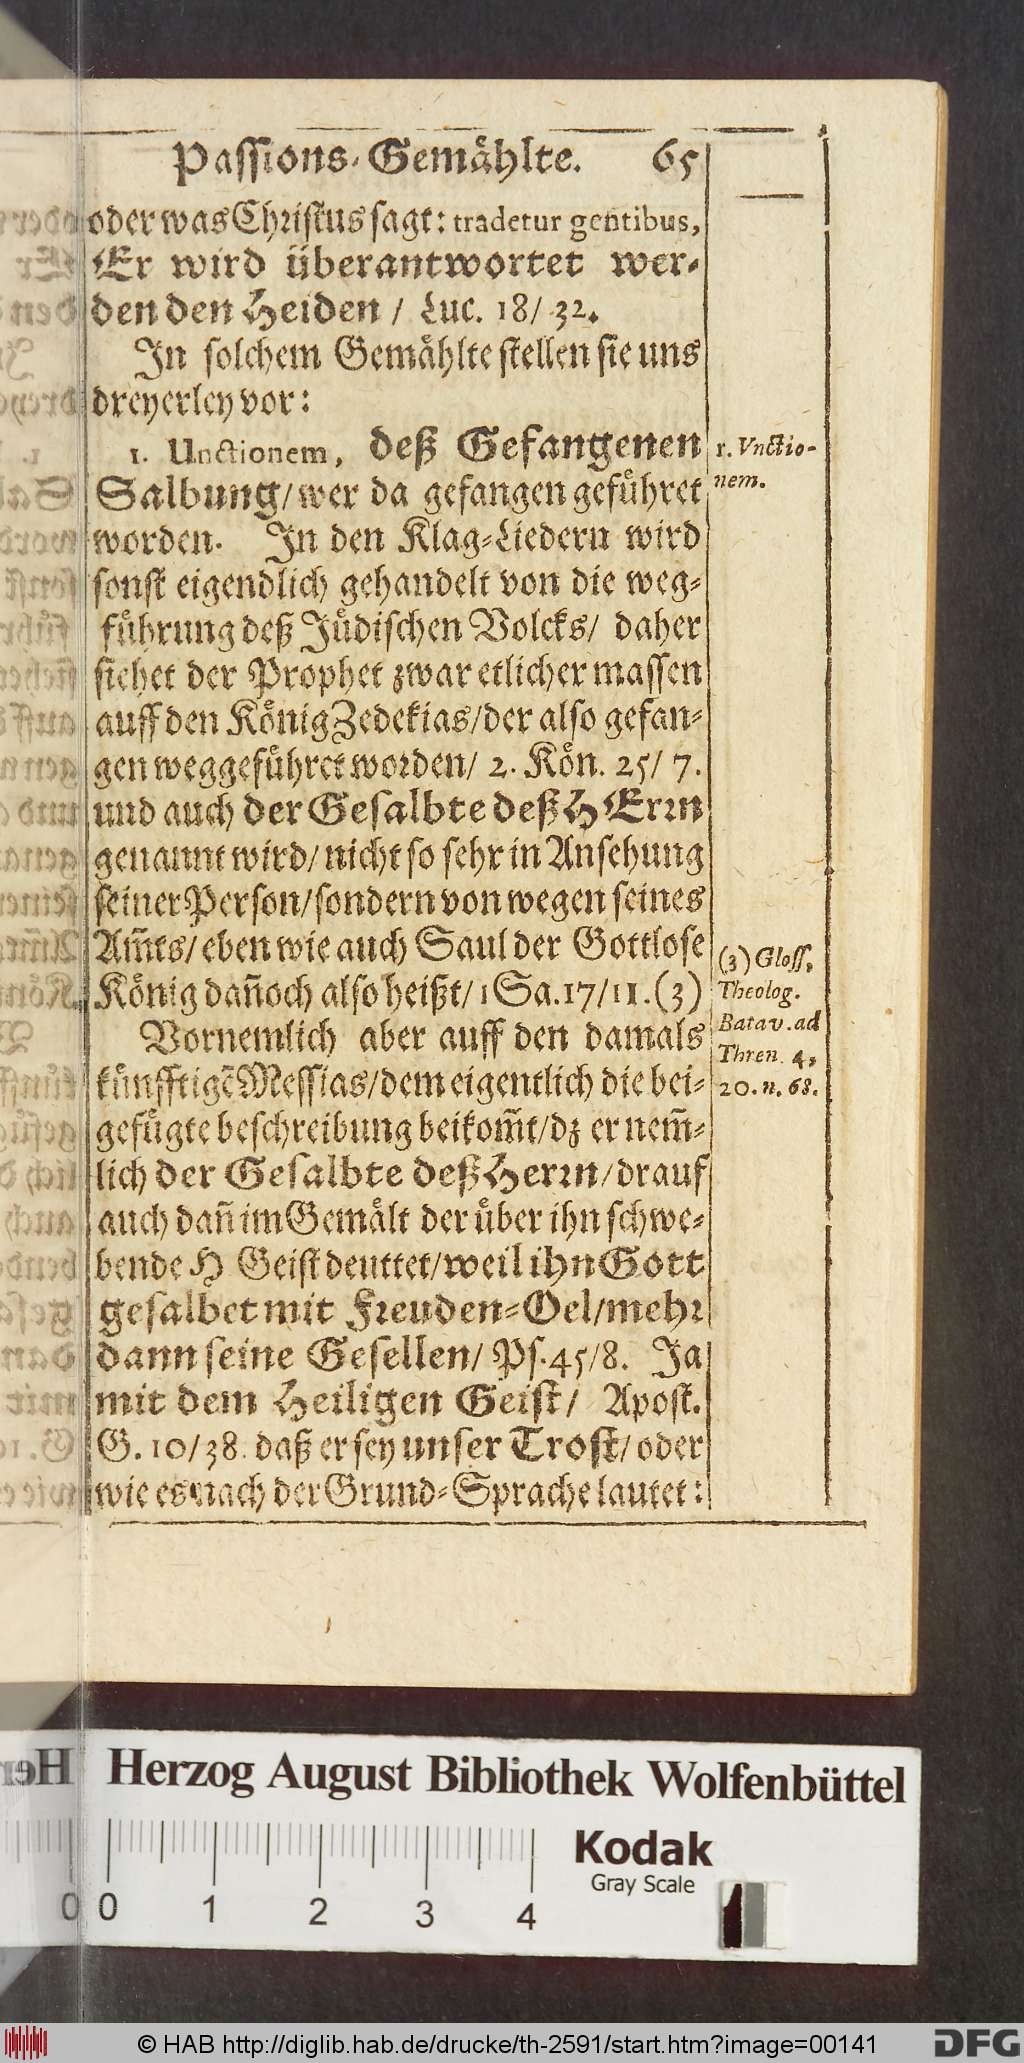 Passions-Gemåhlte. 65
oder was Christus sagt: tradetur gentibus,
Er wird überantwortet wer-
den den Heiden / Luc. 18/ 32.
In solchem Gemåhlte stellen sie uns
dreyerley vor:
1. Unctionem, deß Gefangenen
Salbung/ wer da gefangen gefůhret
worden. In den Klag-Liedern wird
sonst eigendlich gehandelt von die weg-
fůhrung deß Jůdischen Volcks/ daher
siehet der Prophet zwar etlicher massen
auff den Kőnig Zedekias/ der also gefan-
gen weggefůhret worden/ 2. Kőn. 25/ 7.
und auch der Gesalbte deß HErrn
genannt wird/ nicht so sehr in Ansehung
seiner Person/ sondern von wegen seines
Am̃ts/ eben wie auch Saul der Gottlose
Kőnig dañoch also heißt/ 1 Sa. 17/ 11. (3)
Vornemlich aber auff den damals
kůnfftigẽ Messias/ dem eigentlich die bei-
gefůgte beschreibung beikom̃t/ dz er nem̃-
lich der Gesalbte deß Herrn/ drauf
auch dañ im Gemålt der ůber ihn schwe-
bende H Geist deuttet/ weil ihn Gott
gesalbet mit Freuden-Oel/ mehr
dann seine Gesellen/ Ps. 45/ 8. Ja
mit dem Heiligen Geist/ Apost.
G. 10/ 38. daß er sey unser Trost/ oder
wie es nach der Grund-Sprache lautet:
1. Vnctio-
nem.
(3) Gloss.
Theolog.
Batav. ad
Thren. 4,
20. n. 68.
Herzog August Bibliothek Wolfenbüttel
Kodak
Gray Scale
0 0 1 2 3 4
© HAB http://diglib.hab.de/drucke/th-2591/start.htm?image=00141
DFG